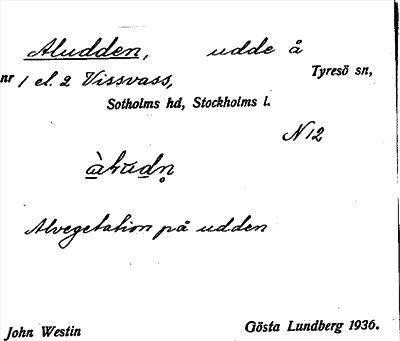 Aludden, udde å
Tyresö sn,
nr 1 el. 2 Vissvass,
Sotholms hd, Stockholms l.
N 12
Alvegetation på udden
John Westin Gösta Lundberg 1936.